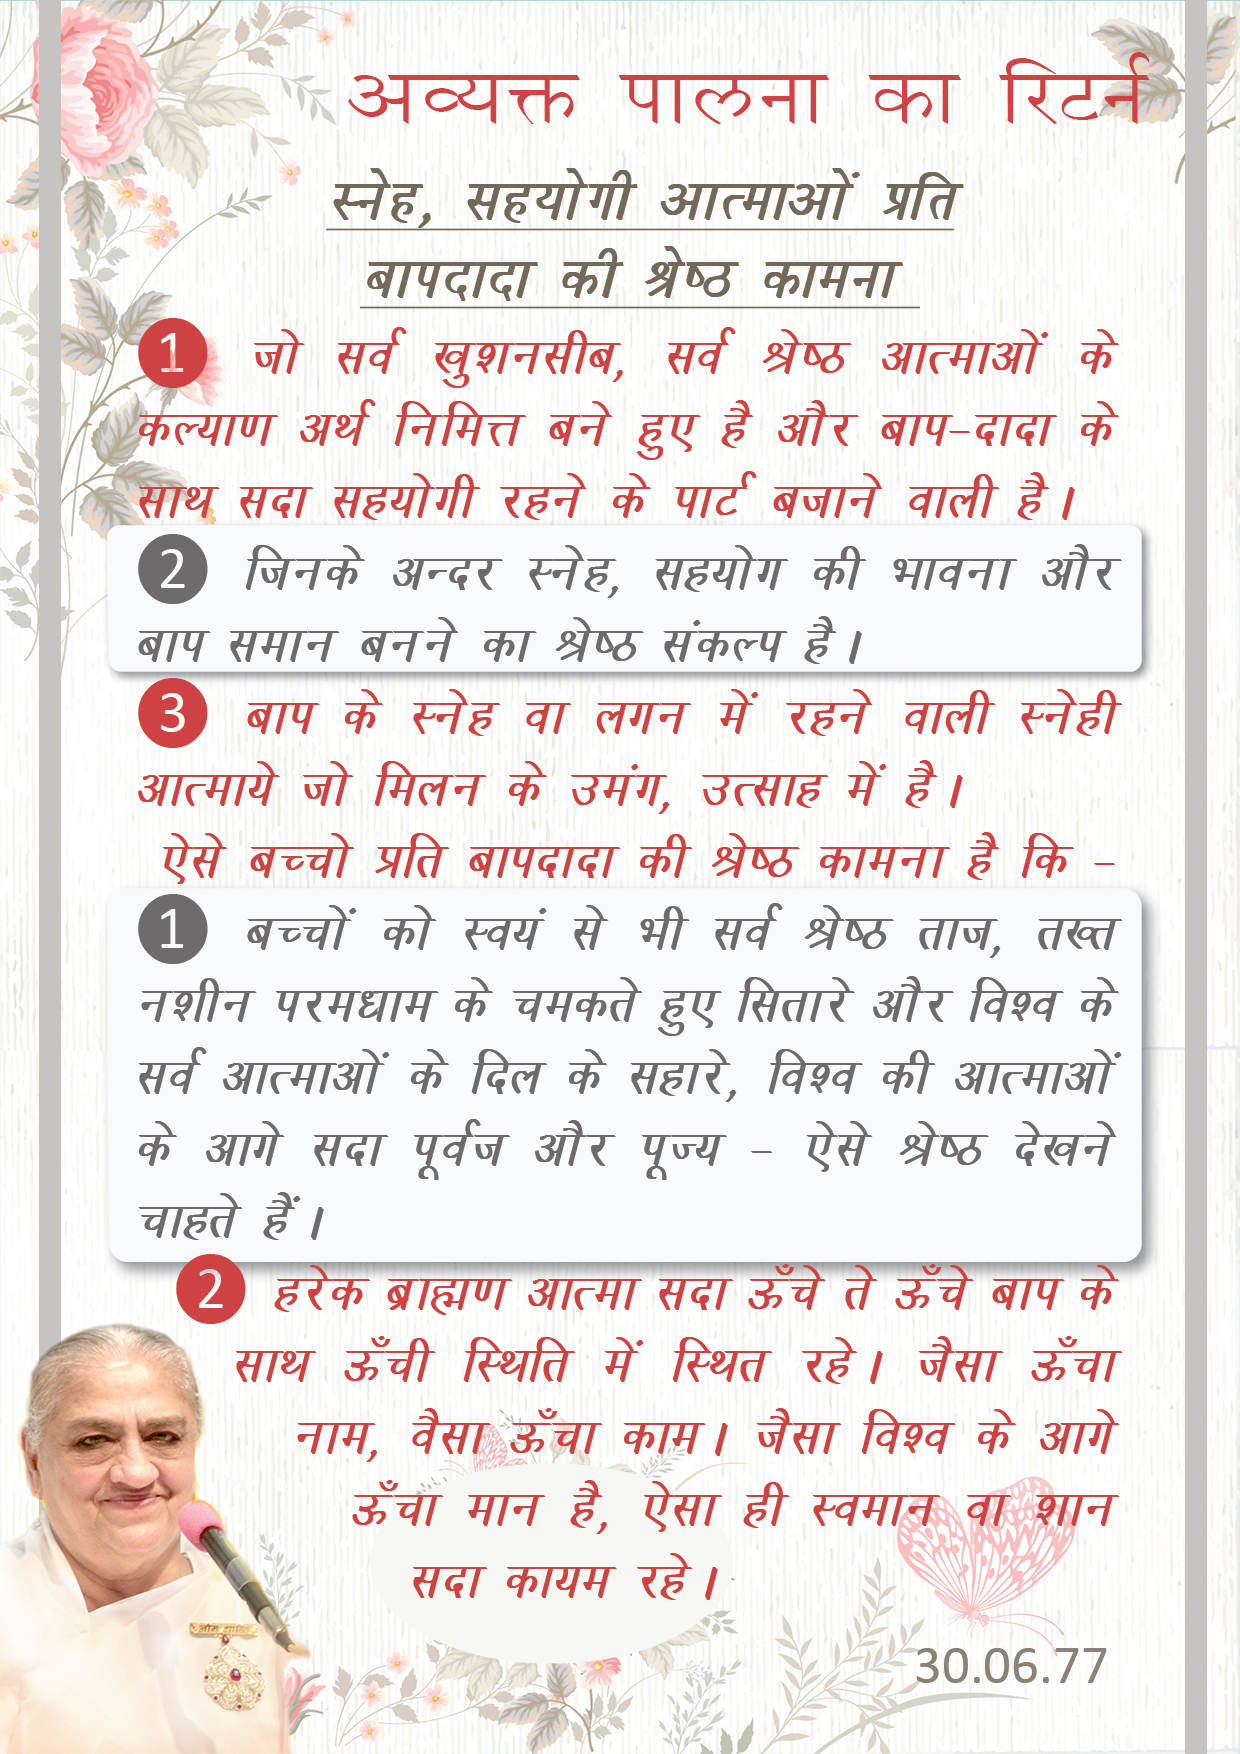 अव्यक्त पालना का रिटर्न
स्नेह, सहयोगी आत्माओं प्रति
बापदादा की श्रेष्ठ कामना
1 जो सर्व खुशनसीब, सर्व श्रेष्ठ आत्माओं के
कल्याण अर्थ निमित्त बने हुए है और बाप-दादा के
साथ सदा सहयोगी रहने के पार्ट बजाने वाली है।
2 जिनके अन्दर स्नेह, सहयोग की भावना और
बाप समान बनने का श्रेष्ठ संकल्प है।
3 बाप के स्नेह वा लगन में रहने वाली स्नेही
आत्माये जो मिलन के उमंग, उत्साह में है।
ऐसे बच्चो प्रति बापदादा की श्रेष्ठ कामना है कि -
1 बच्चों को स्वयं से भी सर्व श्रेष्ठ ताज, तख्त
नशीन परमधाम के चमकते हुए सितारे और विश्व के
सर्व आत्माओं के दिल के सहारे, विश्व की आत्माओं
के आगे सदा पूर्वज और पूज्य - ऐसे श्रेष्ठ देखने
चाहते हैं।
2 हरेक ब्राह्मण आत्मा सदा ऊँचे ते ऊँचे बाप के
साथ ऊँची स्थिति में स्थित रहे। जैसा ऊँचा
नाम, वैसा ऊँचा काम। जैसा विश्व के आगे
ऊँचा मान है, ऐसा ही स्वमान वा शान
सदा कायम रहे।
30.06.77